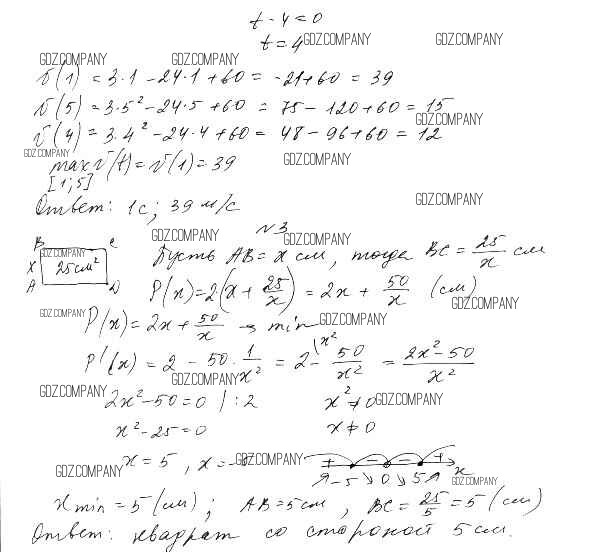 t - 4 = 0
t = 4
GDZ.COMPANY GDZ.COMPANY
GDZ.COMPANY GDZ.COMPANY
v(1) = 3·1 - 24·1 + 60 = -21 + 60 = 39
v(5) = 3·5² - 24·5 + 60 = 75 - 120 + 60 = 15
GDZ.COMPANY
v(4) = 3·4² - 24·4 + 60 = 48 - 96 + 60 = 12
GDZ.COMPANY
max v(t) = v(1) = 39
GDZ.COMPANY
[1;5]
GDZ.COMPANY
Ответ: 1с; 39 м/с
N3
GDZ.COMPANY GDZ.COMPANY
B C
GDZ.COMPANY
X 25см²
A D
Пусть AB = x см, тогда BC = 25/x см
P(x) = 2·(x + 25/x) = 2x + 50/x (см)
GDZ.COMPANY
GDZ.COMPANY
P(x) = 2x + 50/x → min
GDZ.COMPANY
P'(x) = 2 - 50·1/x² = 2 - 50/x² = (2x² - 50)/x²
GDZ.COMPANY
GDZ.COMPANY
2x² - 50 = 0 /:2 x² ≠ 0
GDZ.COMPANY
x² - 25 = 0 x ≠ 0
GDZ.COMPANY
x = 5, x = -5
GDZ.COMPANY
+ - - +
-5 0 5 x
GDZ.COMPANY
x min = 5 (см); AB = 5 см, BC = 25/5 = 5 (см)
Ответ: квадрат со стороной 5 см.